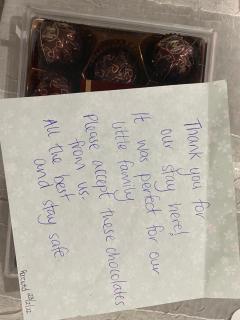 Thank you for
our stay here!
It was perfect for our
little family
Please accept these chocolates
from us.
All the best
and stay safe